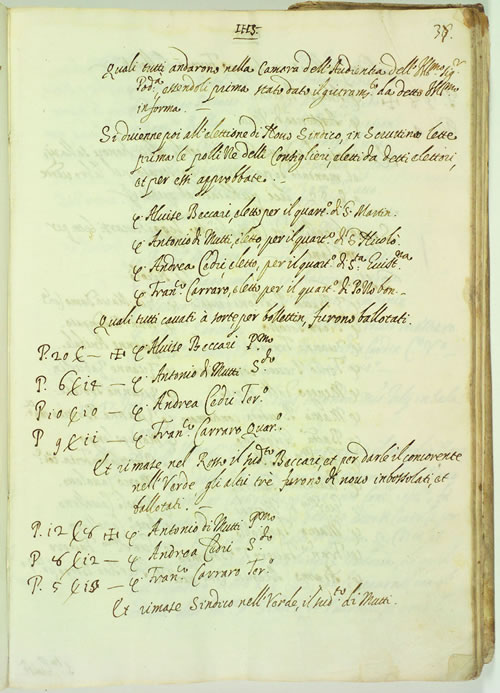 38.
Quali tutti andarono nella Camara dell'Audientia dell' Ill.mo Sig.r
Pod.a, essendoli prima stato dato il giuram.to da detto Ill.mo
in forma.
Si duienne poi all'elettione di Nouo Sindico, in Scrutinio lette
prima le polliZe delli Consiglieri, eletti da detti elettori,
et per essi approbbate. —
Aluise Beccari, eletto per il quart.o di S. Martin.
Antonio di Mutti, eletto, per il quart.o di S. Nicolò
Andrea Cedri eletto, per il quart.o di S.ta
Fran.co Carraro, eletto per il quart.o di
Quali tutti cauati à sorte per bollettin, furono ballotati.
P. 20 C — Aluise Beccari P.mo
P. 6 C 14 — Antonio di Mutti S.do
P 10 C 10 — Andrea Cedri Ter.o
P 9 C 11 — Fran.co Carraro Quar.o
Et rimase nel Rosso il sud.to Beccari, et per darle il concorente
nell'Verde gli altri trè furono di nouo inbossolati, et
ballotati. —
P. 12 C 8 Antonio di Mutti P.mo
P 8 C 12 — Andrea Cedri S.do
P. 5 C — Fran.co Carraro Ter.o
Et rimase Sindico nell'Verde, il sud.to di Mutti.